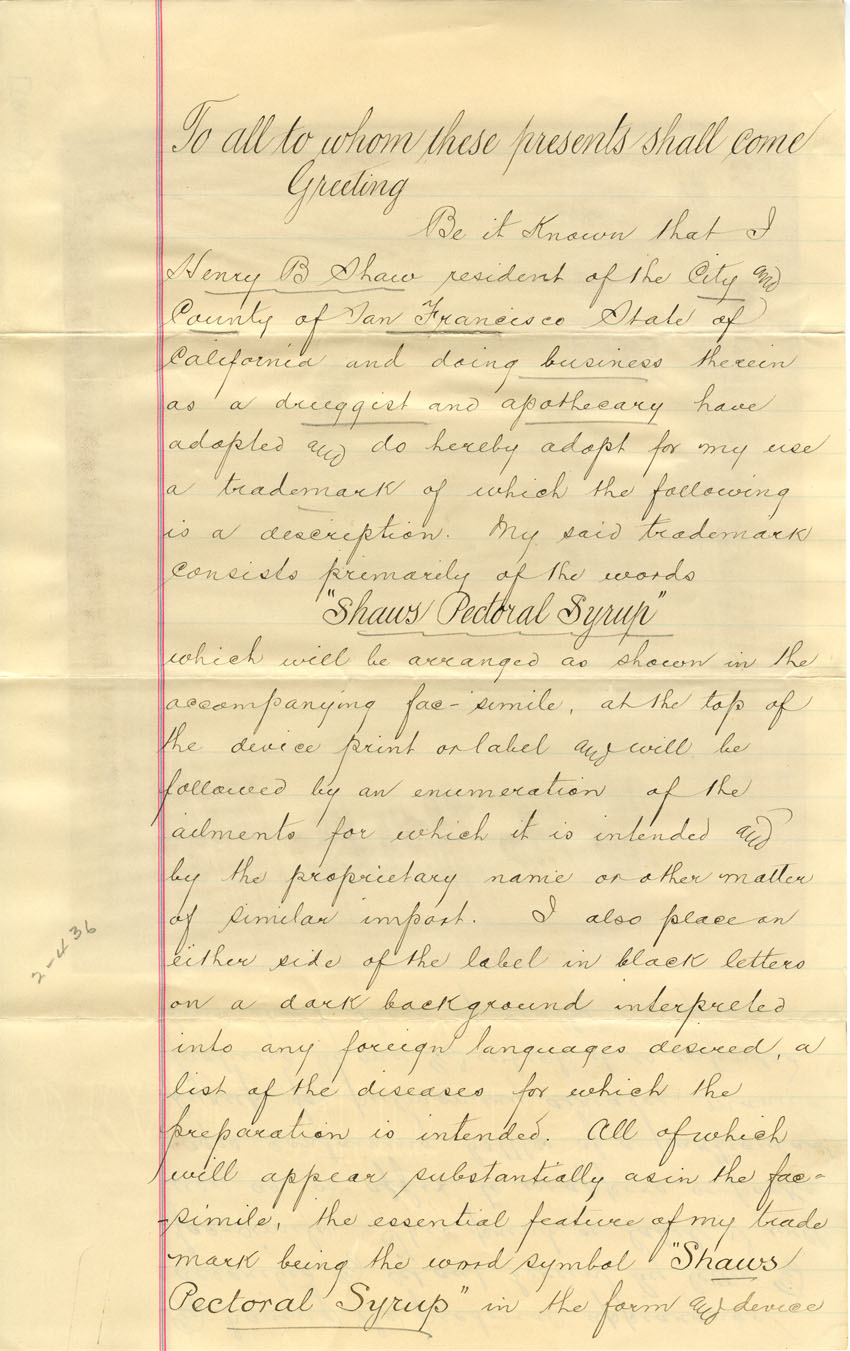 To all to whom these presents shall come
Greeting
Be it Known that I
Henry B Shaw resident of the City and
County of San Francisco State of
California and doing business therein
as a druggist and apothecary have
adopted and do hereby adopt for my use
a trademark of which the following
is a description. My said trademark
consists primarily of the words
"Shaws Pectoral Syrup"
which will be arranged as shown in the
accompanying fac-simile, at the top of
the device print or label and will be
followed by an enumeration of the
ailments for which it is intended and
by the proprietary name or other matter
of similar import. I also place on
either side of the label in black letters
on a dark background interpreted
into any foreign languages desired, a
list of the diseases for which the
preparation is intended. All of which
will appear substantially as in the fac-
-simile, the essential feature of my trade
mark being the word symbol "Shaws
Pectoral Syrup" in the form and device
2-436